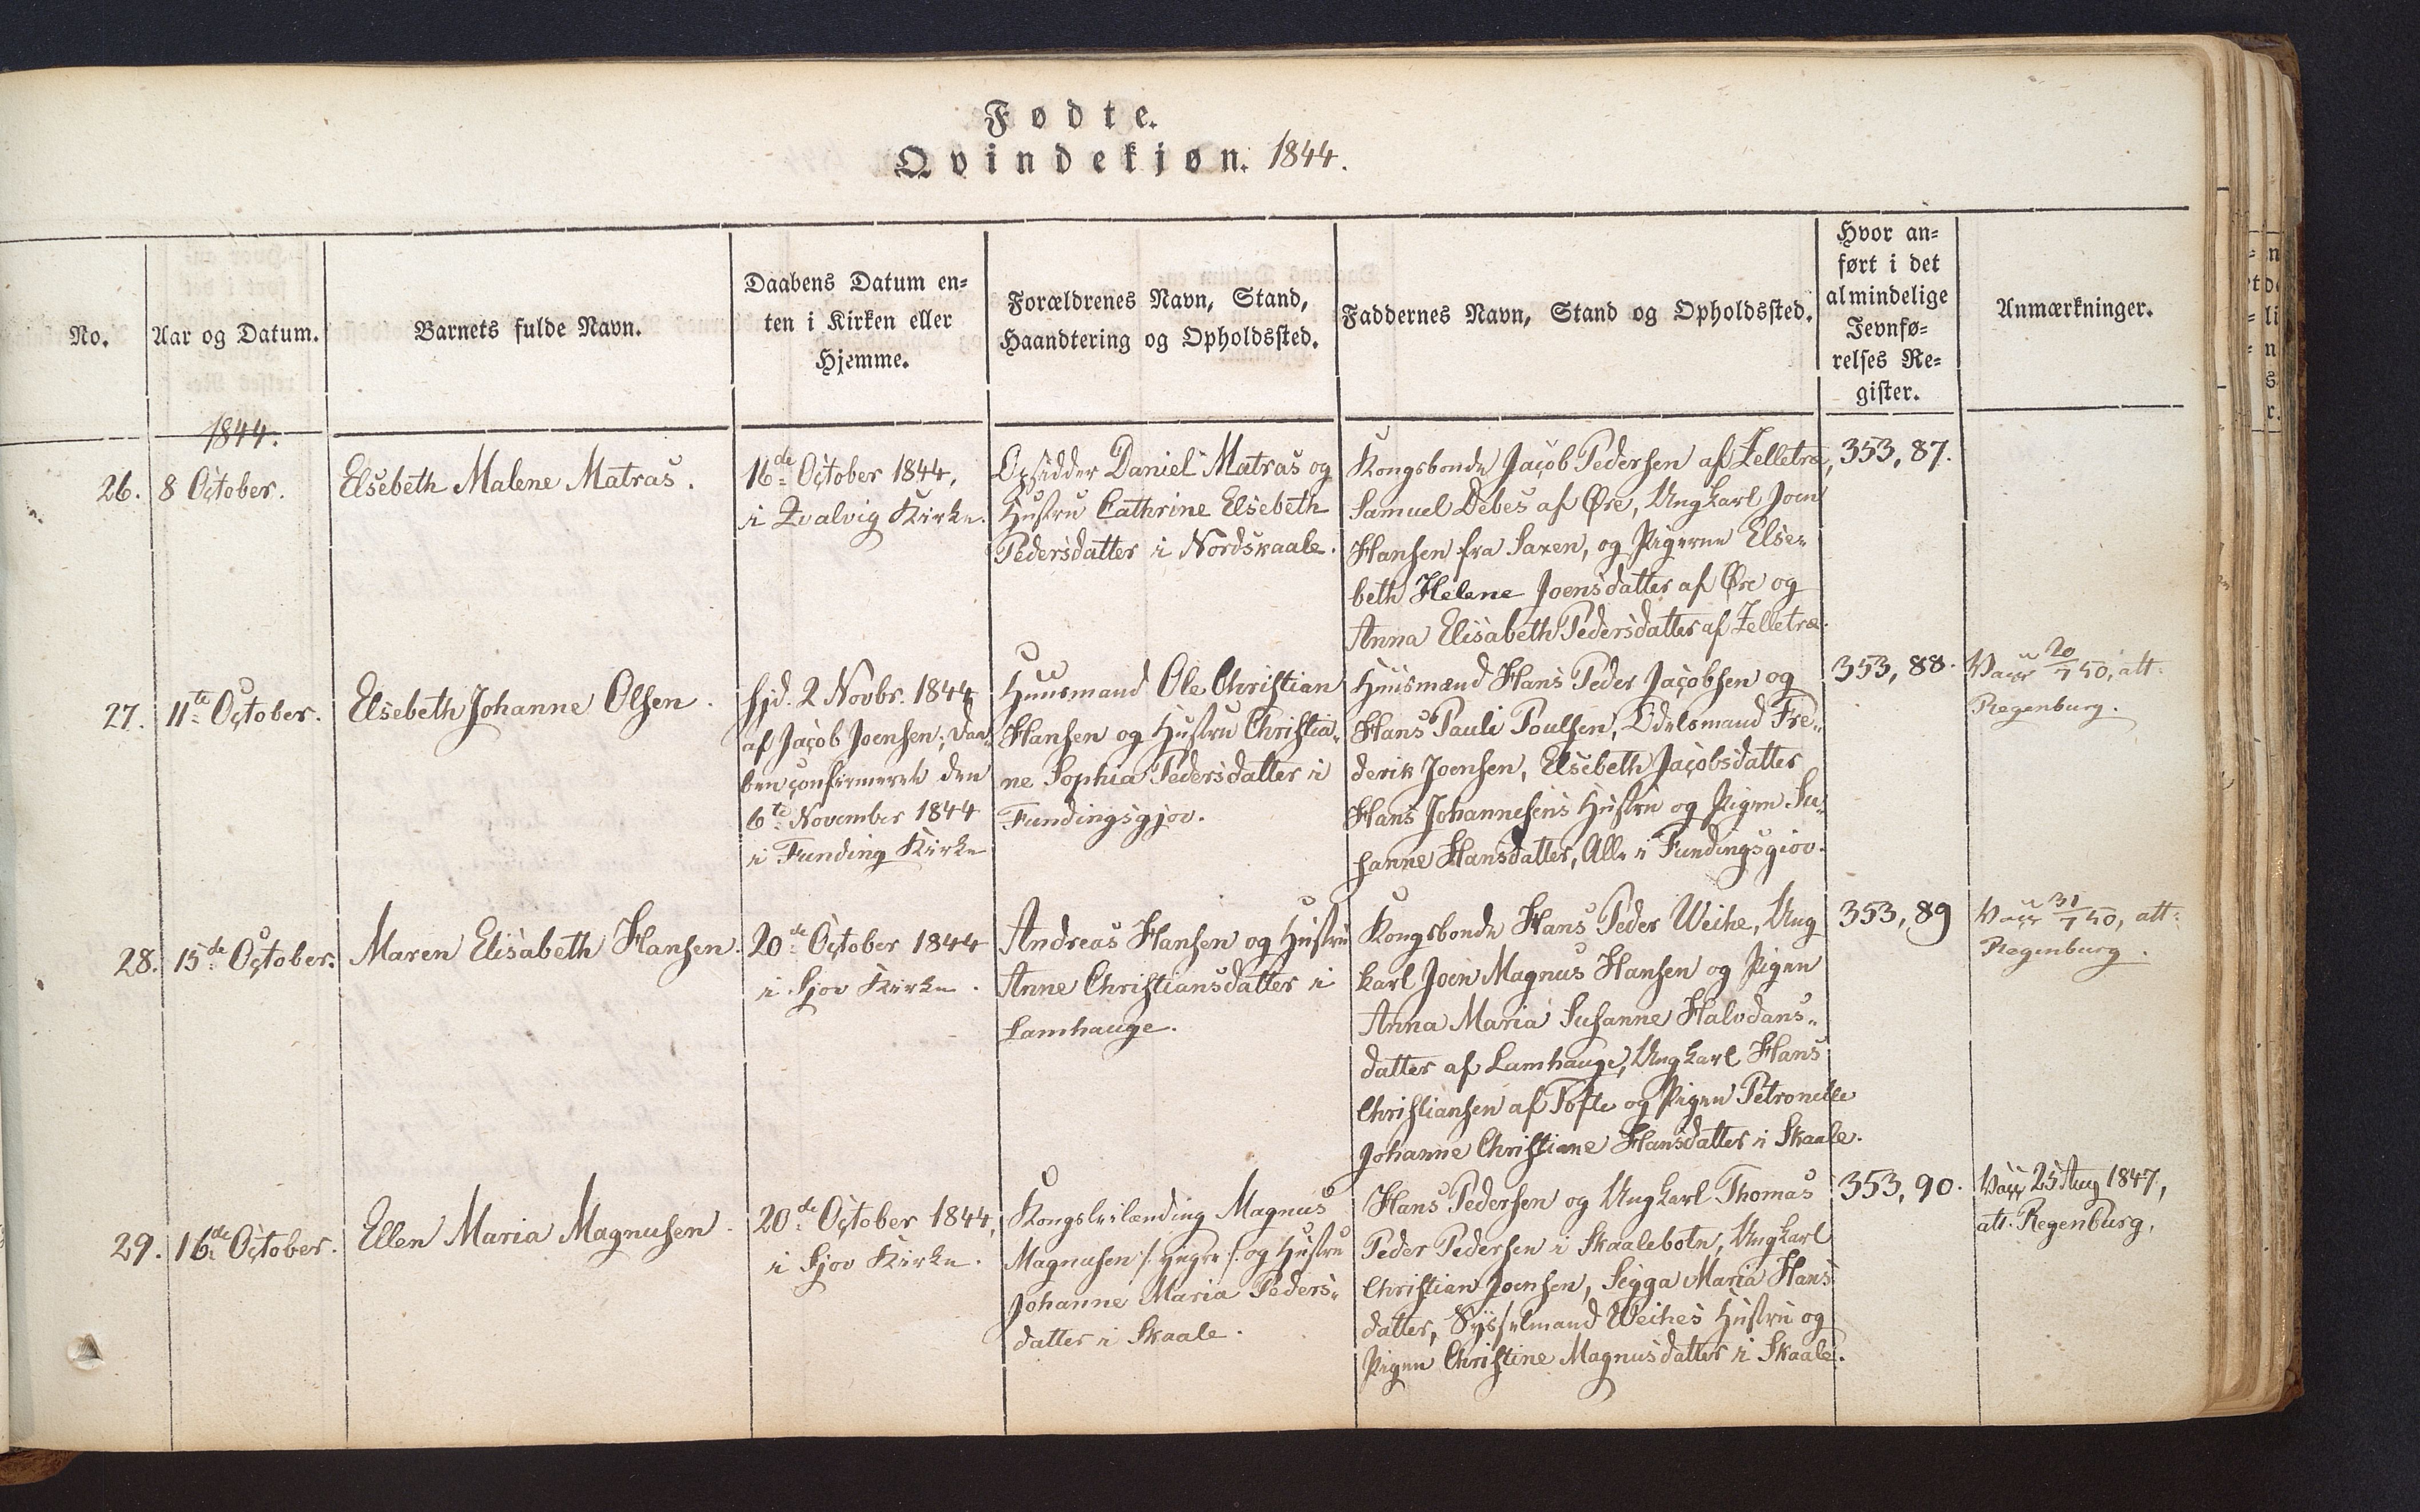 Fødte.
Qvindekjøn. 1844.
No.
Aar og Datum.
Barnets fulde Navn.
Daabens Datum en-
ten i Kirken eller
Hjemme.
Forældrenes Navn, Stand,
Haandtering og Opholdssted.
Faddernes Navn, Stand og Opholdssted.
Hvor an-
ført i det
almindelige
Jevnfø-
relses Re-
gister.
Anmærkninger.
1844.
26.
8 October.
Elsebeth Malene Matras.
16de October 1844,
i Qvalvig Kirke.
Opsidder Daniel Matras og
Hustru Cathrine Elsebeth
Pedersdatter i Nordskaale.
Kongsbonde Jacob Pedersen af Zelletræ,
Samuel Debes af Øre, Ungkarl Joen
Hansen fra Saxen, og Pigerne Else-
beth Helene Joensdatter af Øre og
Anna Elisabeth Pedersdatter af Zelletræ.
353, 87.
27.
11te October.
Elsebeth Johanne Olsen.
hjd. 2 Novbr. 1844
af Jacob Joensen; Daa-
ben confirmeret den
6te November 1844
i Funding Kirke
Huusmand Ole Christian
Hansen og Hustru Christia-
ne Sophia Pedersdatter i
Fundingsgjov.
Huusmænd Hans Peder Jacobsen og
Hans Pauli Poulsen, Odelsmand Fre-
derik Joensen, Elsebeth Jacobsdatter
Hans Johannesens Hustru og Pigen Su-
sanne Hansdatter, Alle i Fundingsgiov.
353, 88.
Vacc 20/7 50, att.
Regenburg.
28.
15de October.
Maren Elisabeth Hansen.
20de October 1844
i Sjov Kirke.
Andreas Hansen og Hustru
Anne Christiansdatter i
Lamhauge.
Kongsbonde Hans Peder Weihe, Ung
karl Joen Magnus Hansen og Pigen
Anna Maria Susanne Halvdans-
datter af Lamhauge, Ungkarl Hans
Christiansen af Tofte og Pigen Petronelle
Johanne Christiane Hansdatter i Skaale.
353, 89
Vacc 31/7 50, att.
Regenburg.
29.
16de October.
Ellen Maria Magnusen.
20de October 1844,
i Sjov Kirke.
Kongsleilænding Magnus
Magnusen /: yngre :/ og Hustru
Johanne Maria Peders-
datter i Skaale.
Hans Pedersen og Ungkarl Thomas
Peder Pedersen i Skaalebotn, Ungkarl
Christian Joensen, Segga Maria Hans
datter, Sysselmand Weihes Hustru og
Pigen Christine Magnusdatter i Skaale.
353, 90.
Vacc 25 Aug 1847,
att. Regenburg.